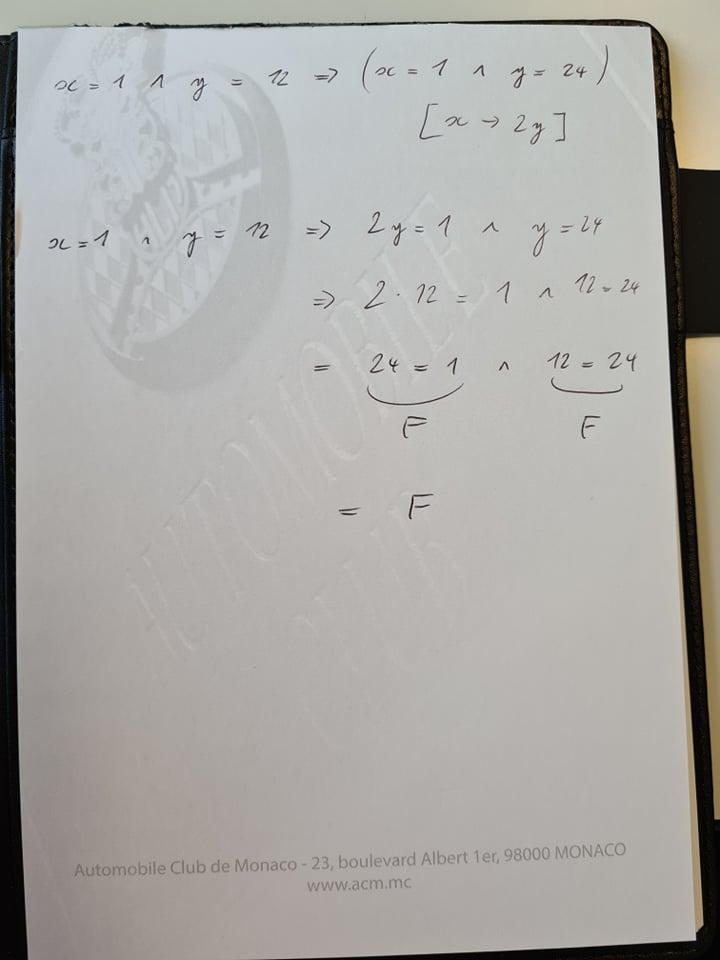 x = 1 ∧ y = 12 ⇒ (x = 1 ∧ y = 24)
[x → 2y]
x = 1 ∧ y = 12 ⇒ 2y = 1 ∧ y = 24
⇒ 2 · 12 = 1 ∧ 12 = 24
= 24 = 1 ∧ 12 = 24
F F
= F
AUTOMOBILE
CLUB
Automobile Club de Monaco - 23, boulevard Albert 1er, 98000 MONACO
www.acm.mc